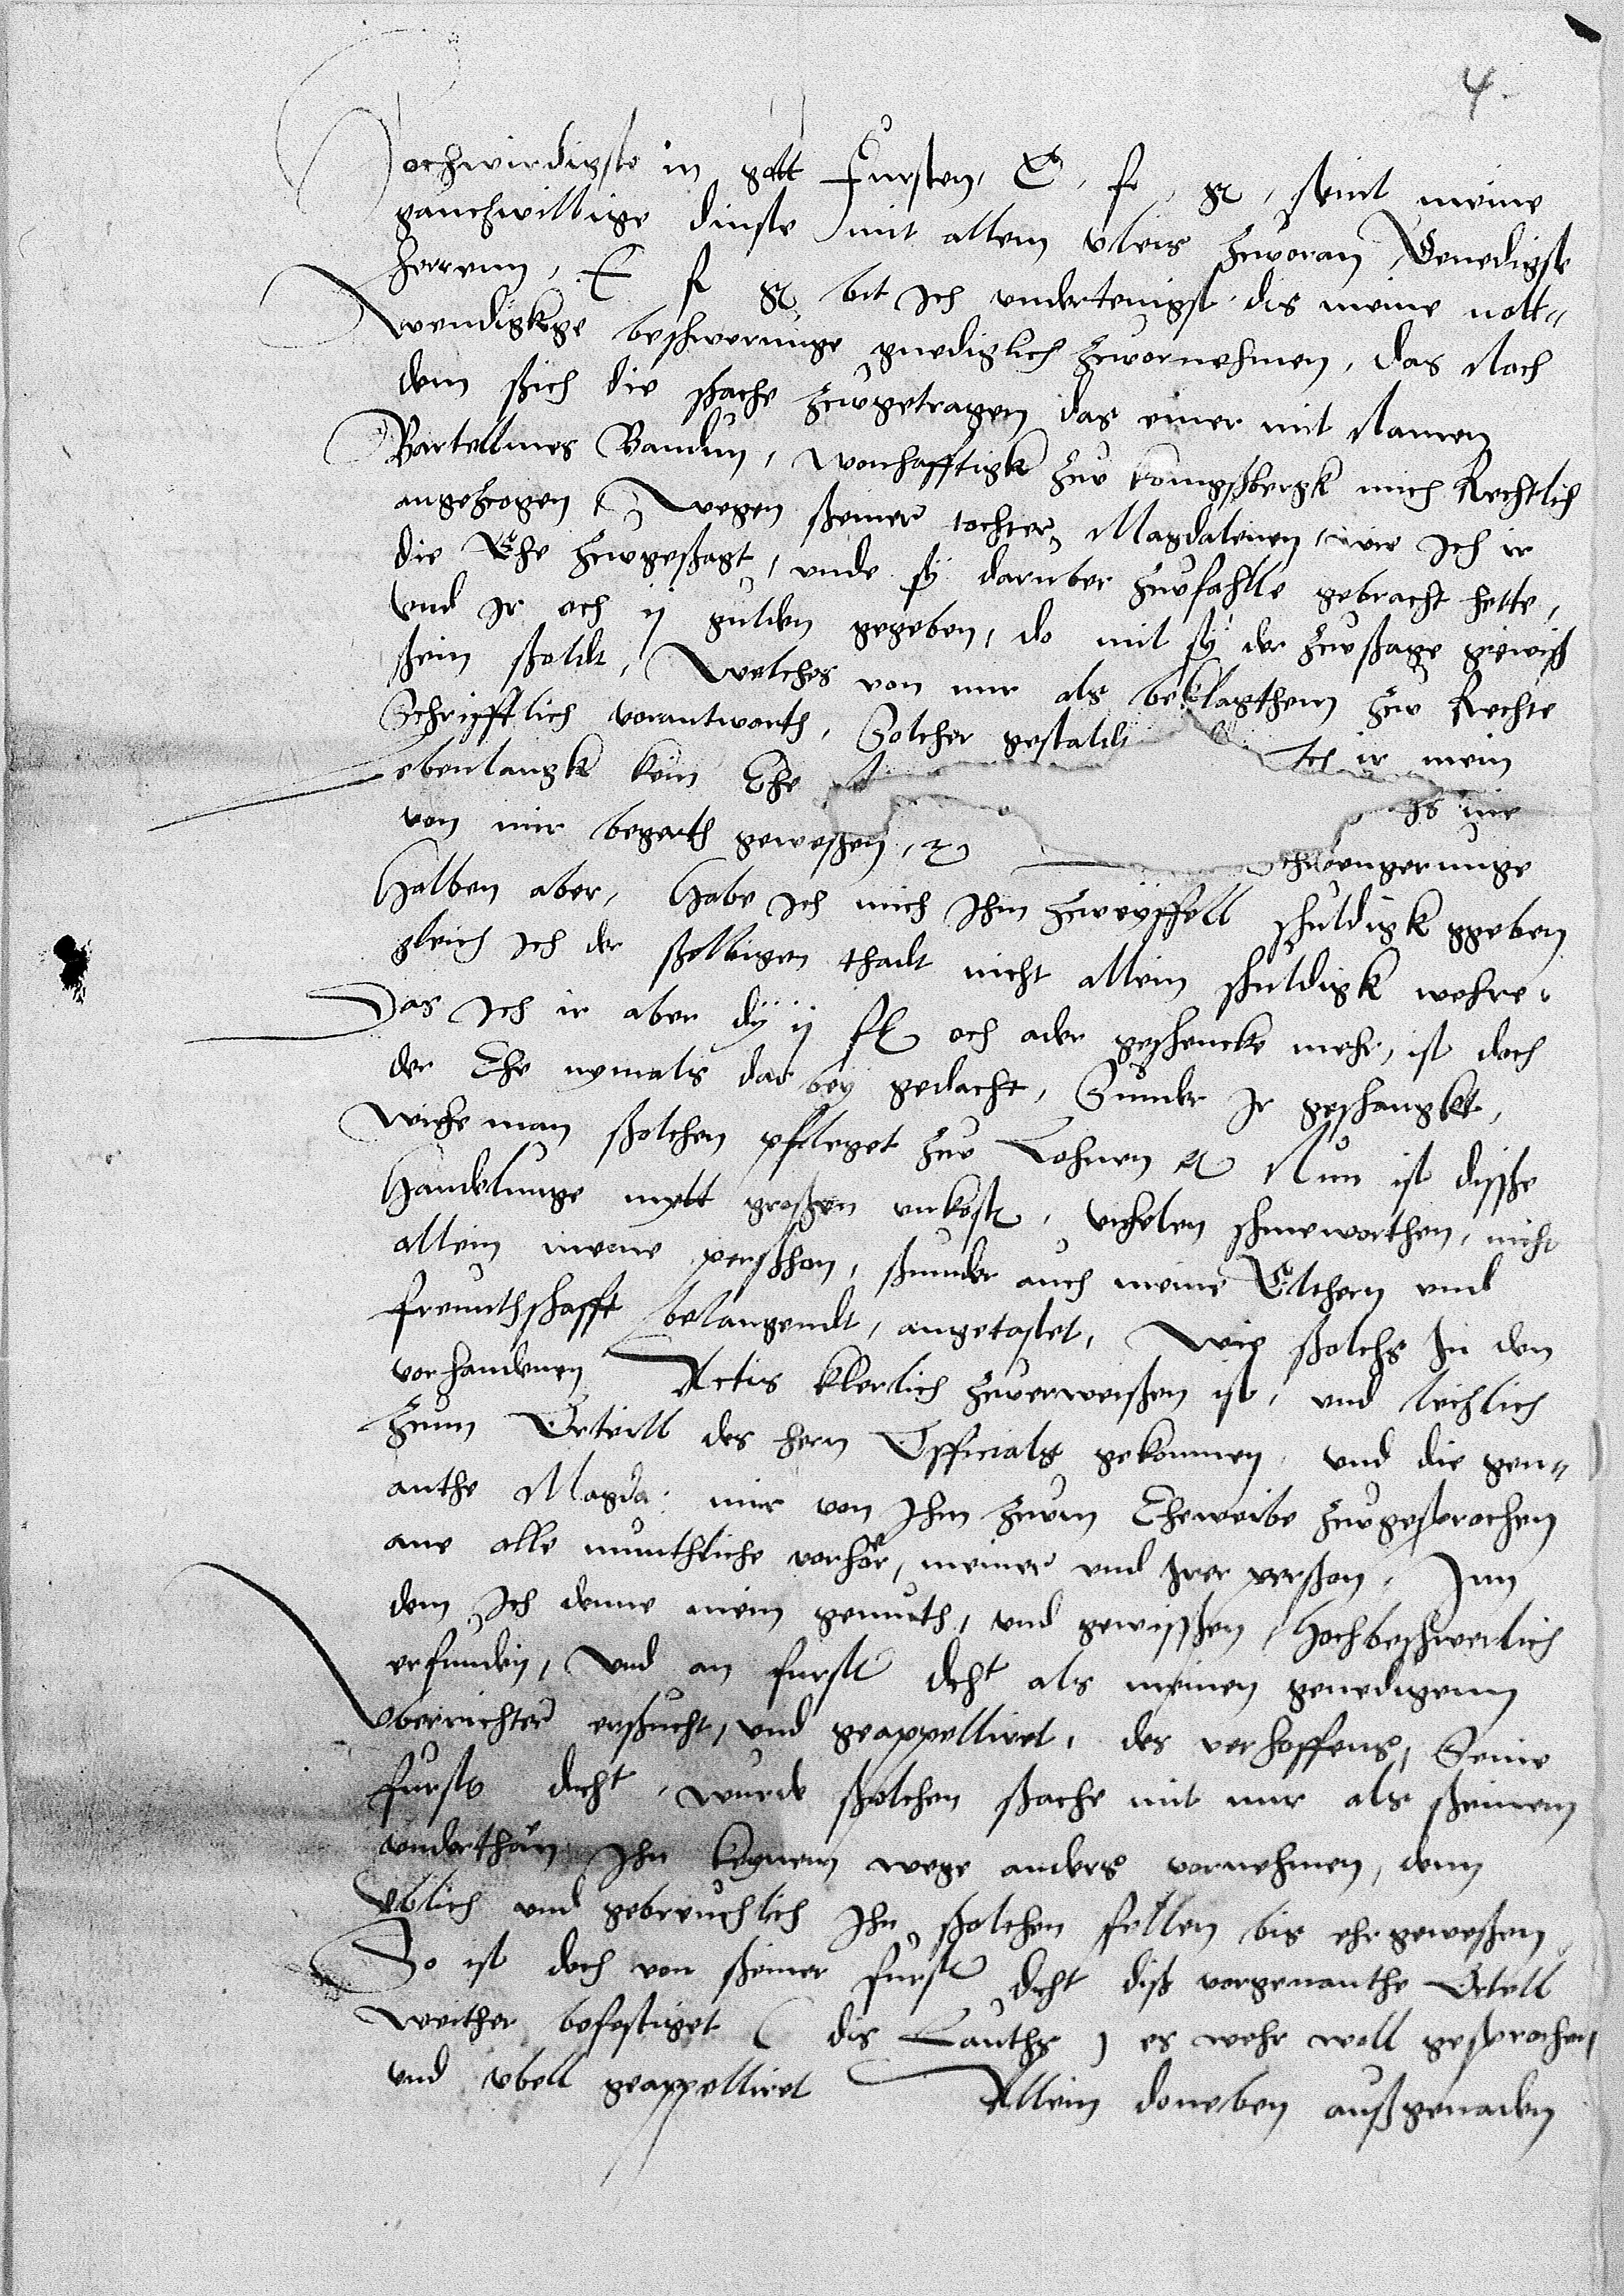 4.
Hochwirdigste in gott Fursten, E, f, g, seint meine
ganczwillige dinste mit allem vleis zuuoran, Genedigste
Herrenn, E f g bit Ich undertenigst dis meine nott„
wendigkege beschwerunge gnediglich zuuornehmen, das Nach
dem sich die sache zugetragen das einer mit Namen
Bartellmes Bandun, wonhafftigk zu konigßbergk mich Rechtlich
angezogen wegen seiner tochter Magdalenen, wie Ich ir
die Ehe zugesagt, unde sy daruber zufahlle gebracht hette,
Und Ir och ij gulden gegeben, do mit sy der zusage gewiß
sein soldt, Welches von mir als beklagthem zu Rechte
Schryfftlich vorantworth, Solcher gestaldt Ich ir mein
ebenlangk kein Ehe hs nie
von mir begerth gewesen, chwengerunge
Halben aber, Habe Ich mich Ihn zweyffell schuldigk ggeben
gleich Ich der selbigen thadt nicht allein schuldigk wehre,
Das Ich ir aber dy ij fl och ader geschencke mehr, ist doch
der Ehe nymals dar bey gedacht, Sunder Ir geschangkt,
Wiehe man solchen pfleget zu Lohnen Nun ist disse
Handelunge mytt grossen unkost, viehelen schmeworthen, nicht
allein meine persshon, sunder auch meine Elthern und
freunthschafft belangendt, angetastet, Wie solchs In den
vorhandenen Actis klerlich zuuerweissen ist, und leczlich
zum Orteill des hern Officials gekommen, und die gen„
anthe Magda: mir von Ihm zum Eheweibe zugesprochen
ane alle munthliche vorhör, meiner und Irer person, Inn
dem Ich denne mein gemuth, und gewissen, Hochbeschwerlich
erfunden, Und an furst dcht als meinen genedigenn
Oberrichter ersucht, und geappelliret, des verhoffens, Seine
furst dcht, wurde solchen sache mit mir als seinem
underthan, Ihn keynem wege anders vornehmen, denn
Ublich und gebreuchlich Ihn solchen fellen bis ehr gewesen
So ist doch von seiner furst dcht diß vorgenanthe Ortell
weither befestiget (dis Lauths) es wehr woll gesprochen
und ubell geappelliret Allein doneben auß genaden